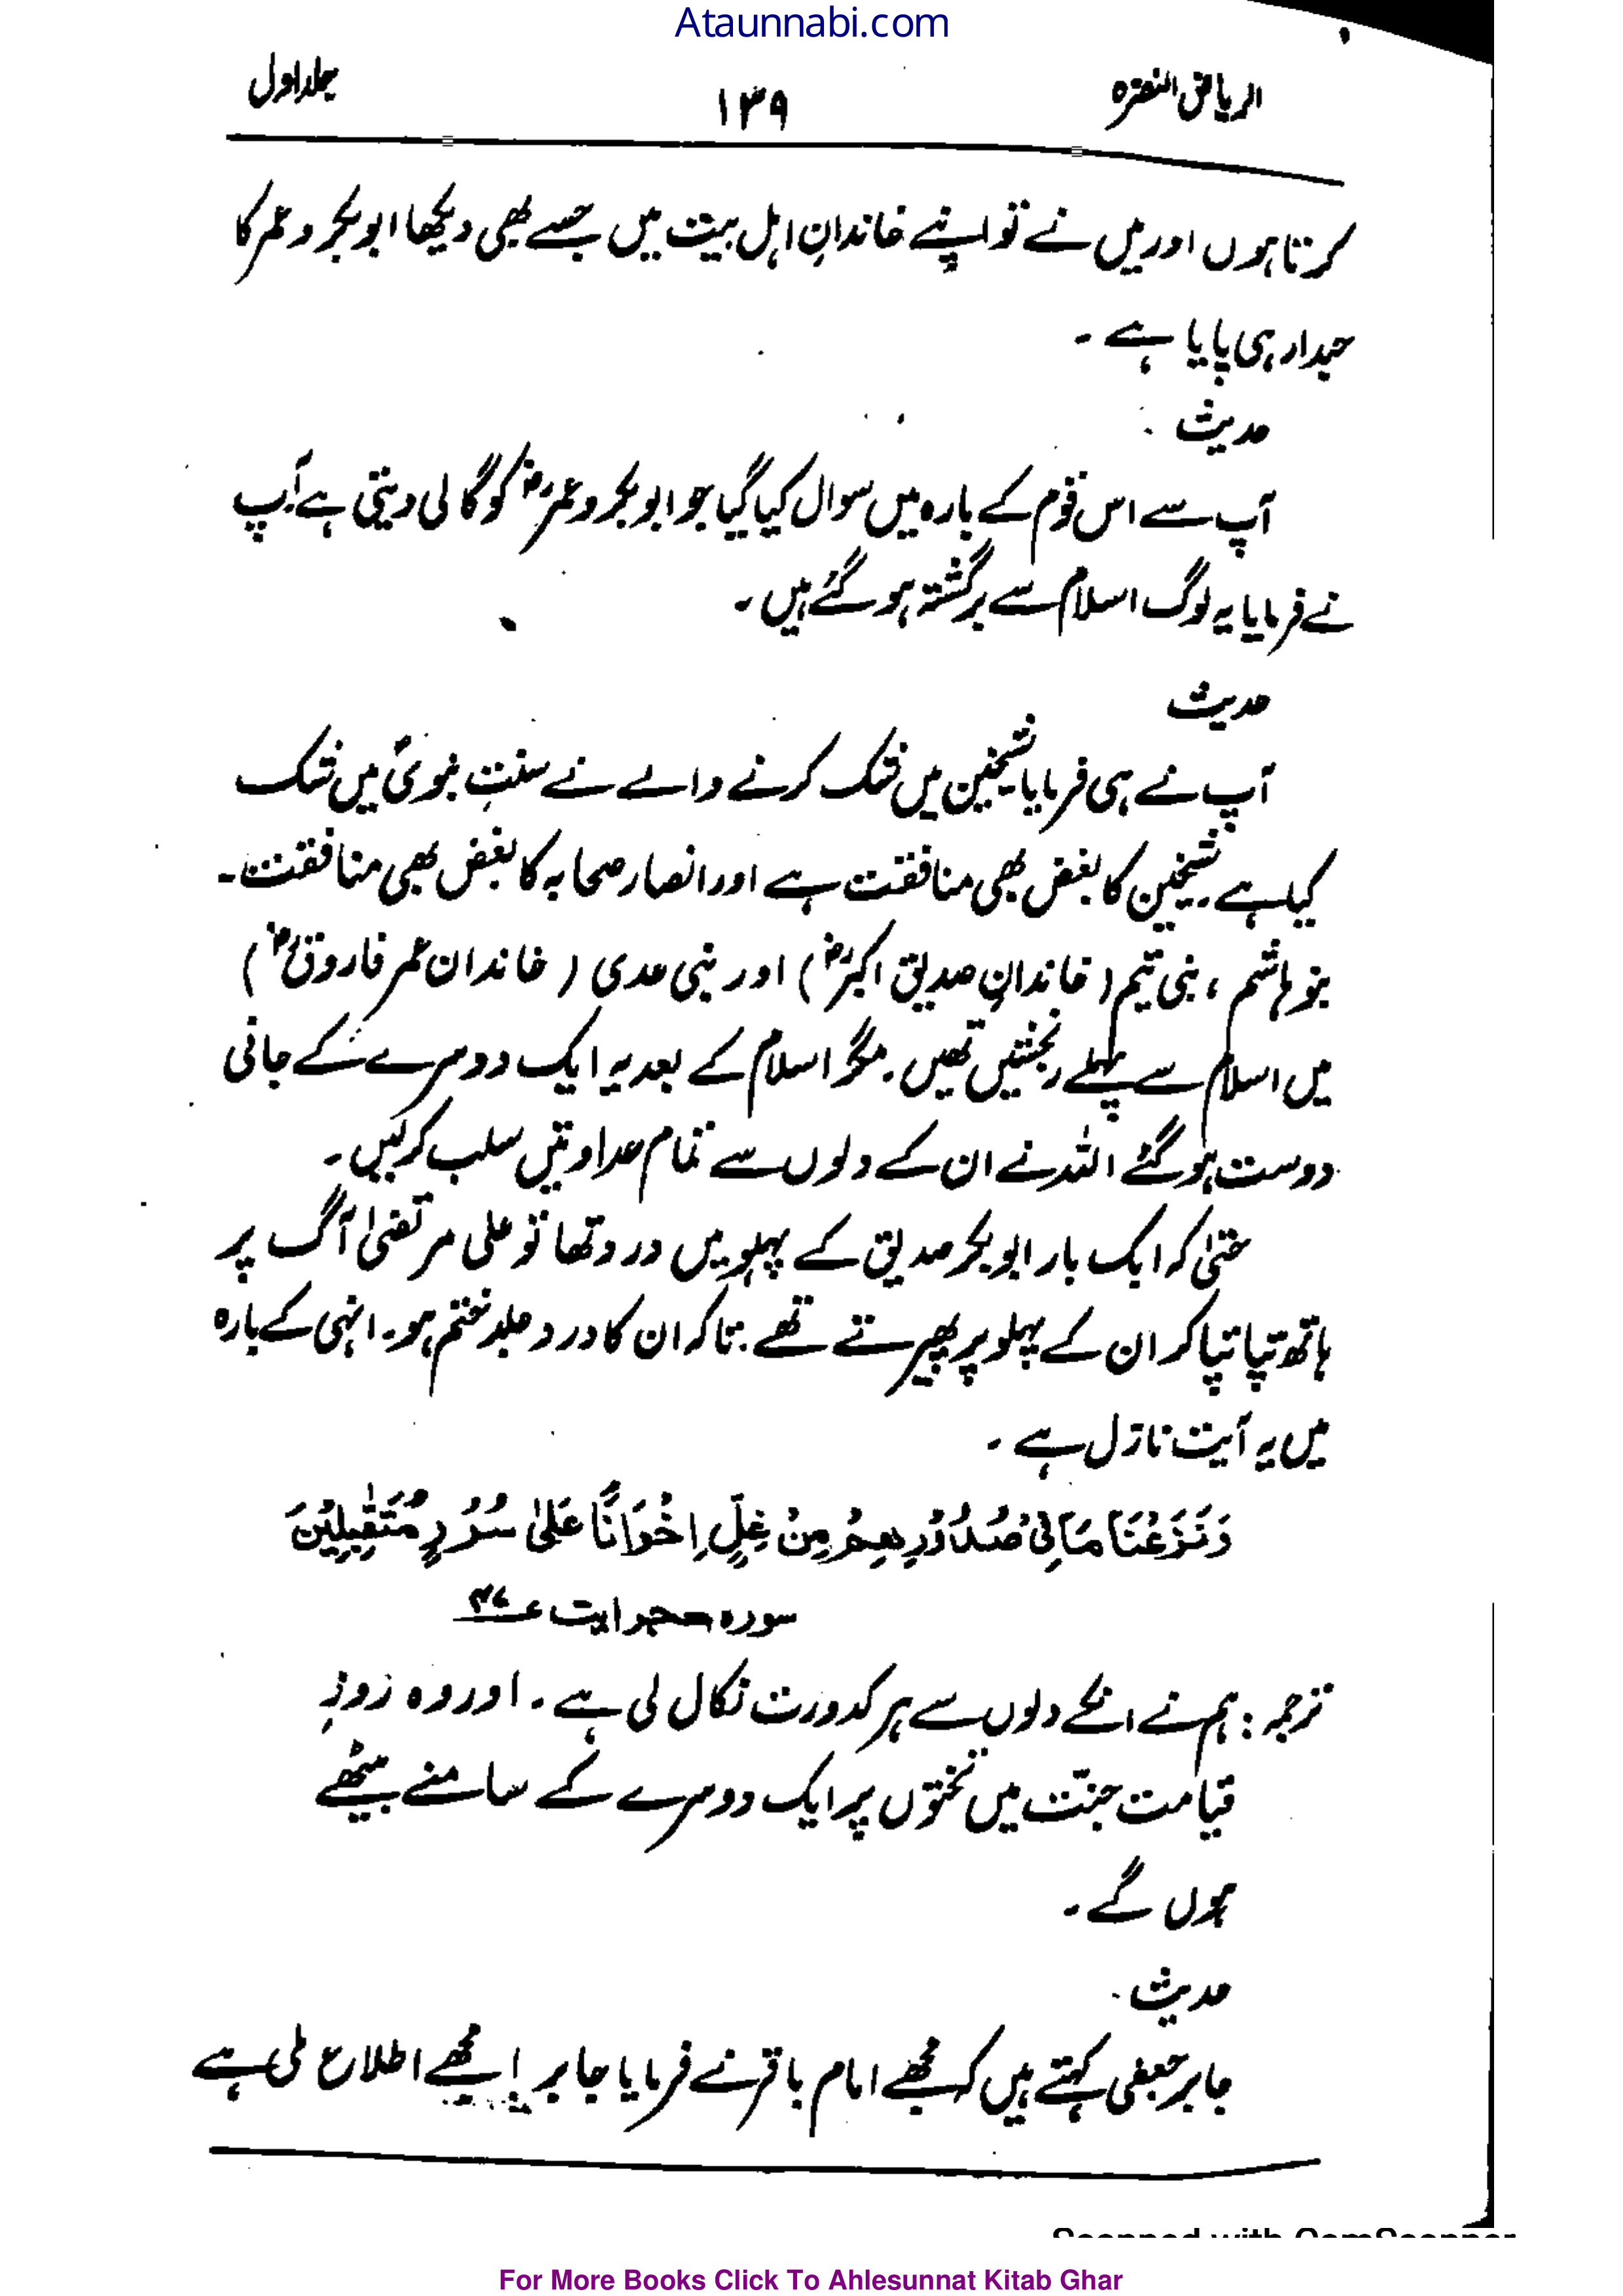 Ataunnabi.com
الریاض النضرہ ۱۳۹ جلد اول
کرتا ہوں اور میں نے تو اپنے خاندانِ اہل بیت میں جسے بھی دیکھا ابوبکر و عمر کا
حبدار ہی پایا ہے ۔
حدیث
آپ سے اس قوم کے بارہ میں سوال کیا گیا جو ابوبکر و عمرؓ کو گالی دیتی ہے آپ
نے فرمایا یہ لوگ اسلام سے برگشتہ ہو گئے ہیں ۔
حدیث
آپ نے ہی فرمایا شیخین میں شک کرنے والے نے سنتِ نبویؐ میں شک
کیا ہے ۔ شیخین کا بغض بھی منافقت ہے اور انصار صحابہ کا بغض بھی منافقت ۔
بنو ہاشم ، بنی تیم (خاندانِ صدیق اکبرؓ) اور بنی عدی (خاندان عمر فاروقؓ)
میں اسلام سے پہلے رنجشیں تھیں ۔ مگر اسلام کے بعد یہ ایک دوسرے کے جانی
دوست ہو گئے اللہ نے ان کے دلوں سے تمام عداوتیں سلب کر لیں ۔
حتیٰ کہ ایک بار ابوبکر صدیق کے پہلو میں درد تھا تو علی مرتضیٰ آگ پر
ہاتھ تپا تپا کر ان کے پہلو پر پھیرتے تھے ۔ تاکہ ان کا درد جلد ختم ہو ۔ انہی کے بارہ
میں یہ آیت نازل ہے ۔
وَنَزَعْنَا مَا فِیْ صُدُوْرِهِمْ مِنْ غِلٍّ اِخْوَانًا عَلیٰ سُرُرٍ مُّتَقٰبِلِیْنَ
سورہ حجر ایت ۴۷
ترجمہ : ہم نے انکے دلوں سے ہر کدورت نکال لی ہے ۔ اور وہ روزِ
قیامت جنت میں تختوں پر ایک دوسرے کے سامنے بیٹھے
ہوں گے ۔
حدیث
جابر جعفی کہتے ہیں کہ مجھے امام باقر نے فرمایا جابر ! مجھے اطلاع ملی ہے
Scanned with CamScanner
For More Books Click To Ahlesunnat Kitab Ghar